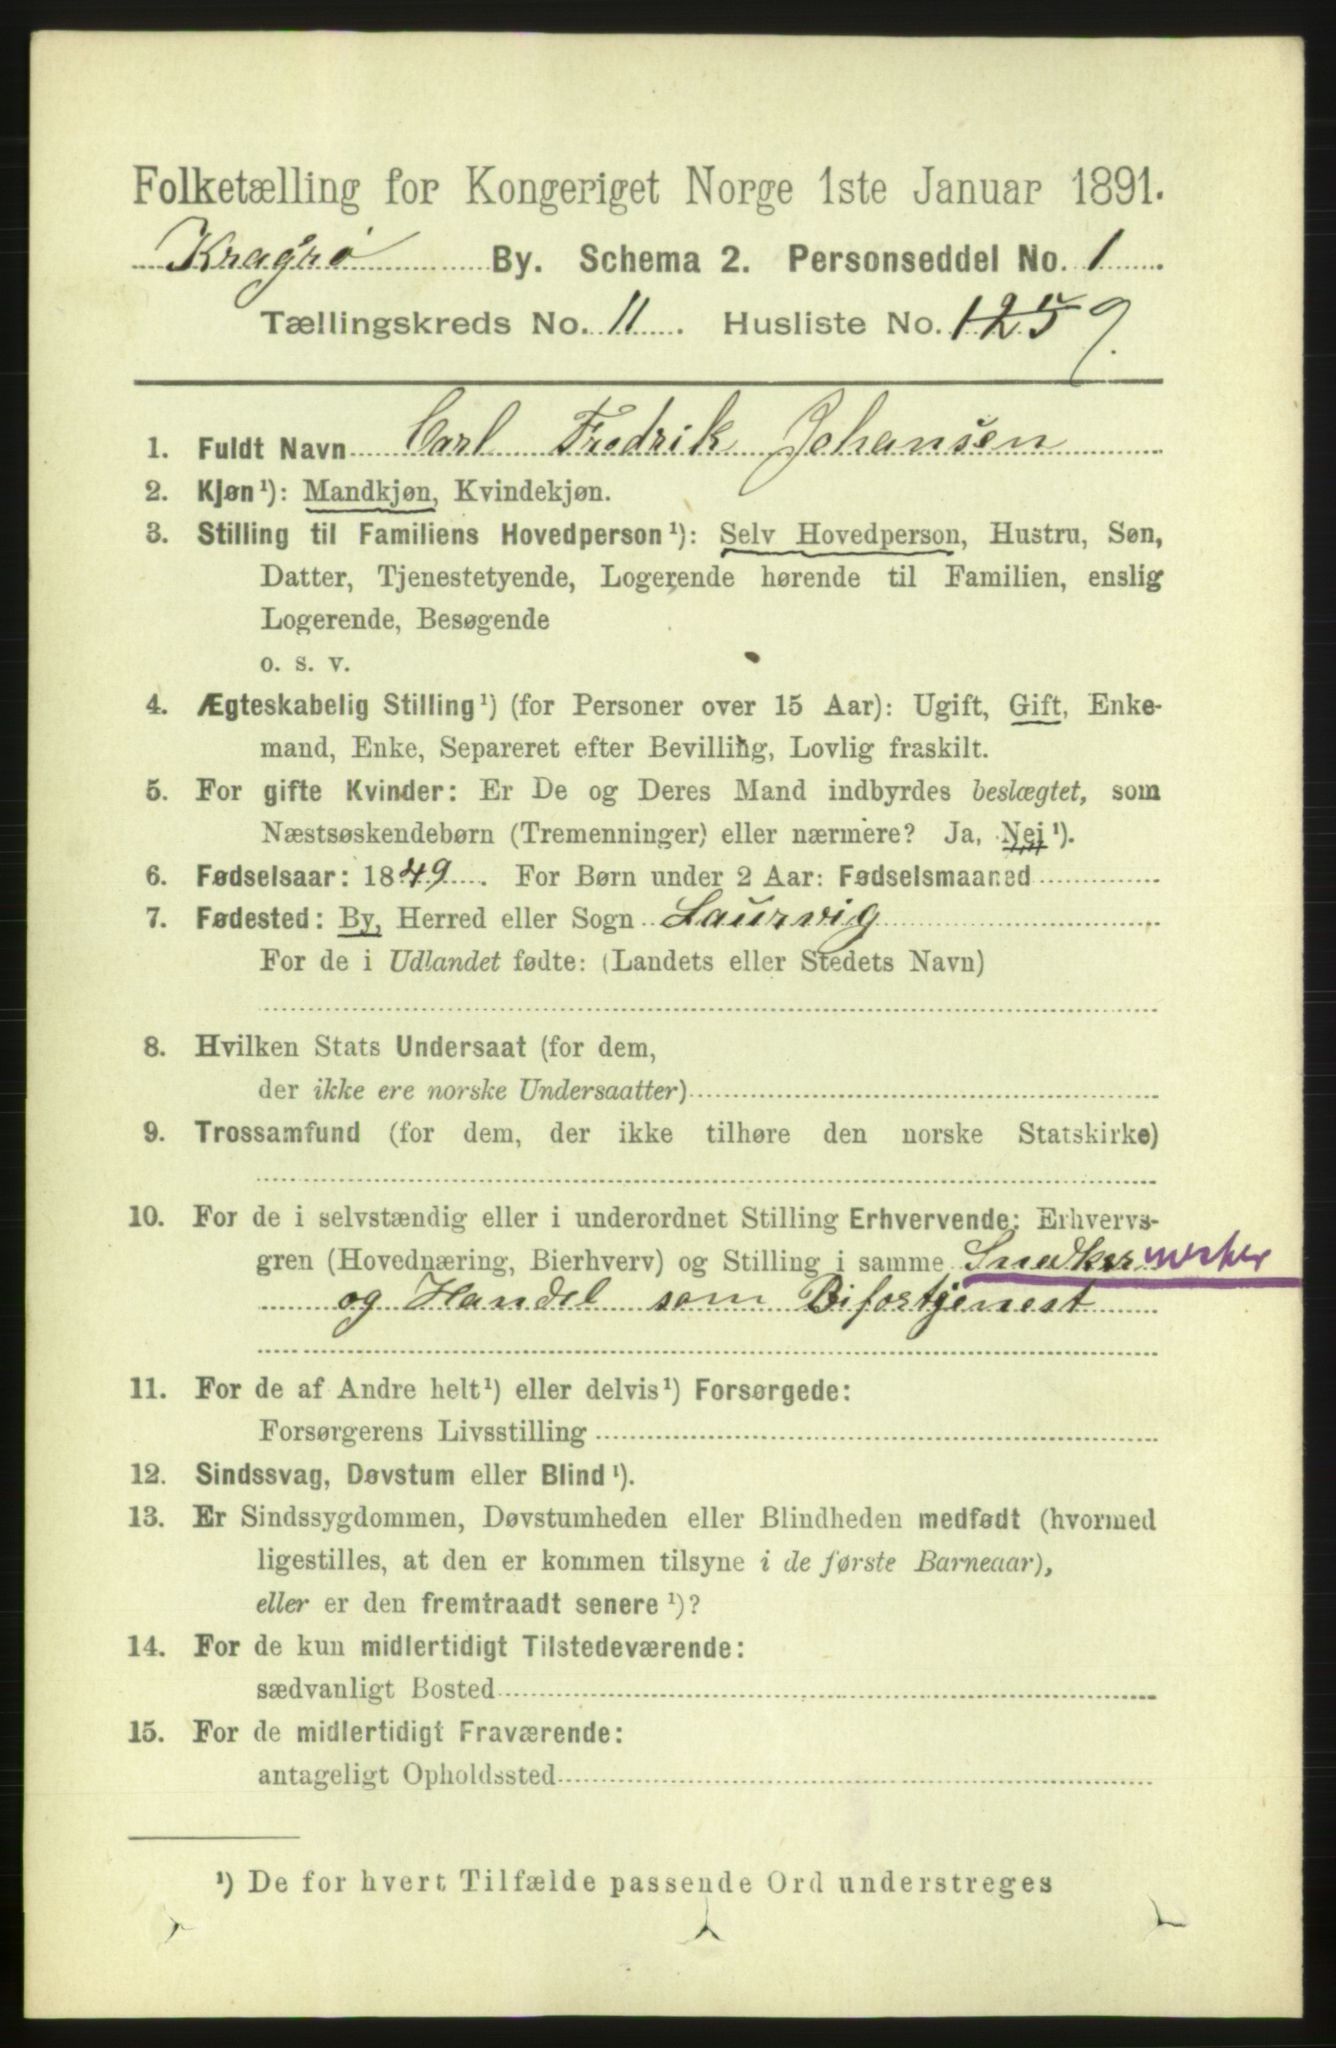 Folketælling for Kongeriget Norge 1ste Januar 1891.
Kragerø By. Schema 2. Personseddel No. 1
Tællingskreds No. 11. Husliste No. 125 9.
1. Fuldt Navn Carl Fredrik Johansen
2. Kjøn¹): Mandkjøn, Kvindekjøn.
3. Stilling til Familiens Hovedperson¹): Selv Hovedperson, Hustru, Søn,
Datter, Tjenestetyende, Logerende hørende til Familien, enslig
Logerende, Besøgende
o. s. v.
4. Ægteskabelig Stilling¹) (for Personer over 15 Aar): Ugift, Gift, Enke-
mand, Enke, Separeret efter Bevilling, Lovlig fraskilt.
5. For gifte Kvinder: Er De og Deres Mand indbyrdes beslægtet, som
Næstsøskendebørn (Tremenninger) eller nærmere? Ja, Nei¹).
6. Fødselsaar: 1849. For Børn under 2 Aar: Fødselsmaaned
7. Fødested: By, Herred eller Sogn Laurvig
For de i Udlandet fødte: (Landets eller Stedets Navn)
8. Hvilken Stats Undersaat (for dem,
der ikke ere norske Undersaatter)
9. Trossamfund (for dem, der ikke tilhøre den norske Statskirke)
10. For de i selvstændig eller i underordnet Stilling Erhvervende: Erhvervs-
gren (Hovednæring, Bierhverv) og Stilling i samme Snedker mester
og Handel som Bifortjenest
11. For de af Andre helt¹) eller delvis¹) Forsørgede:
Forsørgerens Livsstilling
12. Sindssvag, Døvstum eller Blind¹).
13. Er Sindssygdommen, Døvstumheden eller Blindheden medfødt (hvormed
ligestilles, at den er kommen tilsyne i de første Barneaar),
eller er den fremtraadt senere¹)?
14. For de kun midlertidigt Tilstedeværende:
sædvanligt Bosted
15. For de midlertidigt Fraværende:
antageligt Opholdssted
¹) De for hvert Tilfælde passende Ord understreges